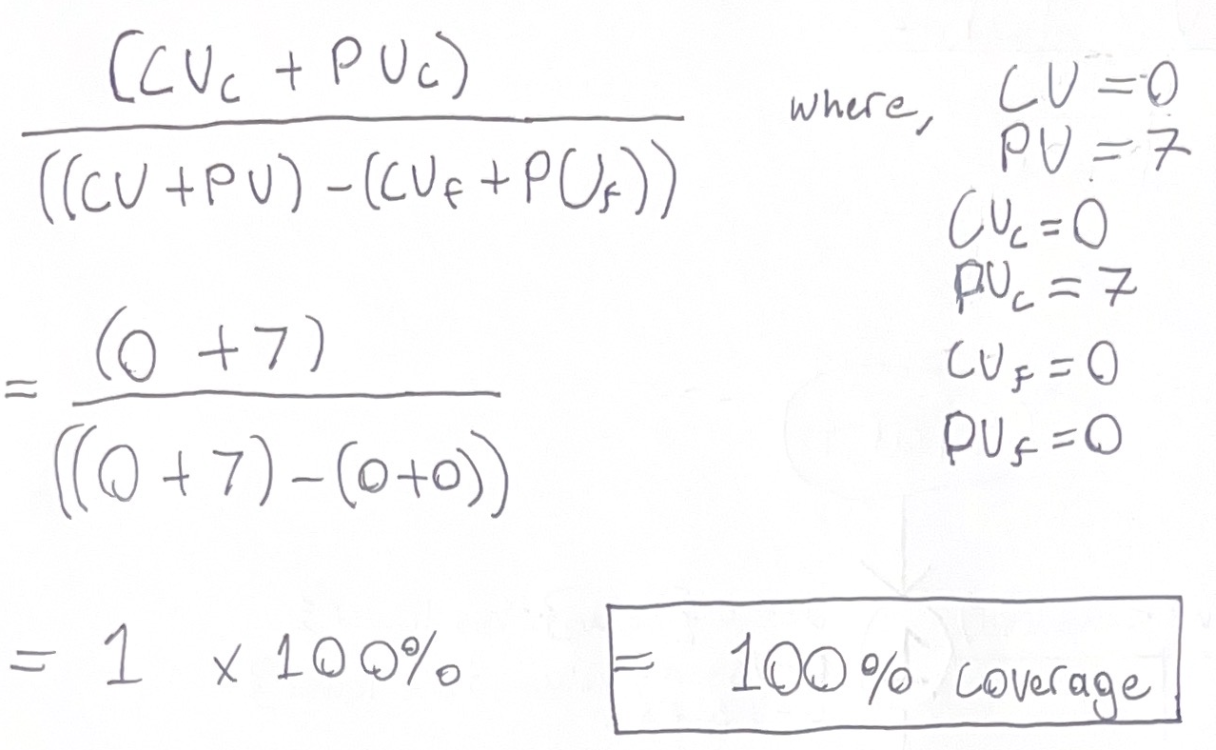 (CUc + PUc)
((CU + PU) - (CUf + PUf))
where, CU = 0
PU = 7
CUc = 0
PUc = 7
CUf = 0
PUf = 0
= (0 + 7)
((0 + 7) - (0+0))
= 1 x 100%
= 100% coverage